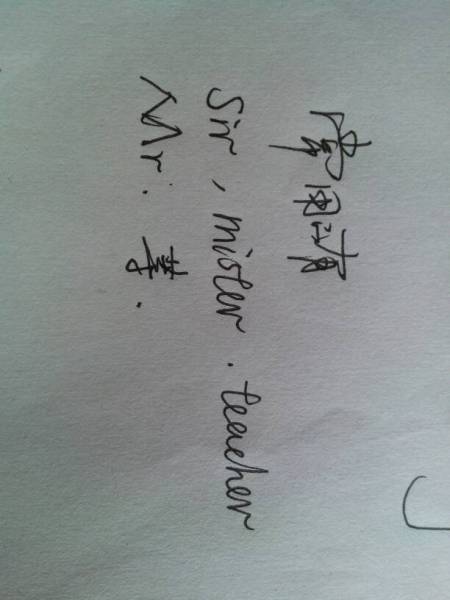 常用有
Sir, mister. teacher
Mr.